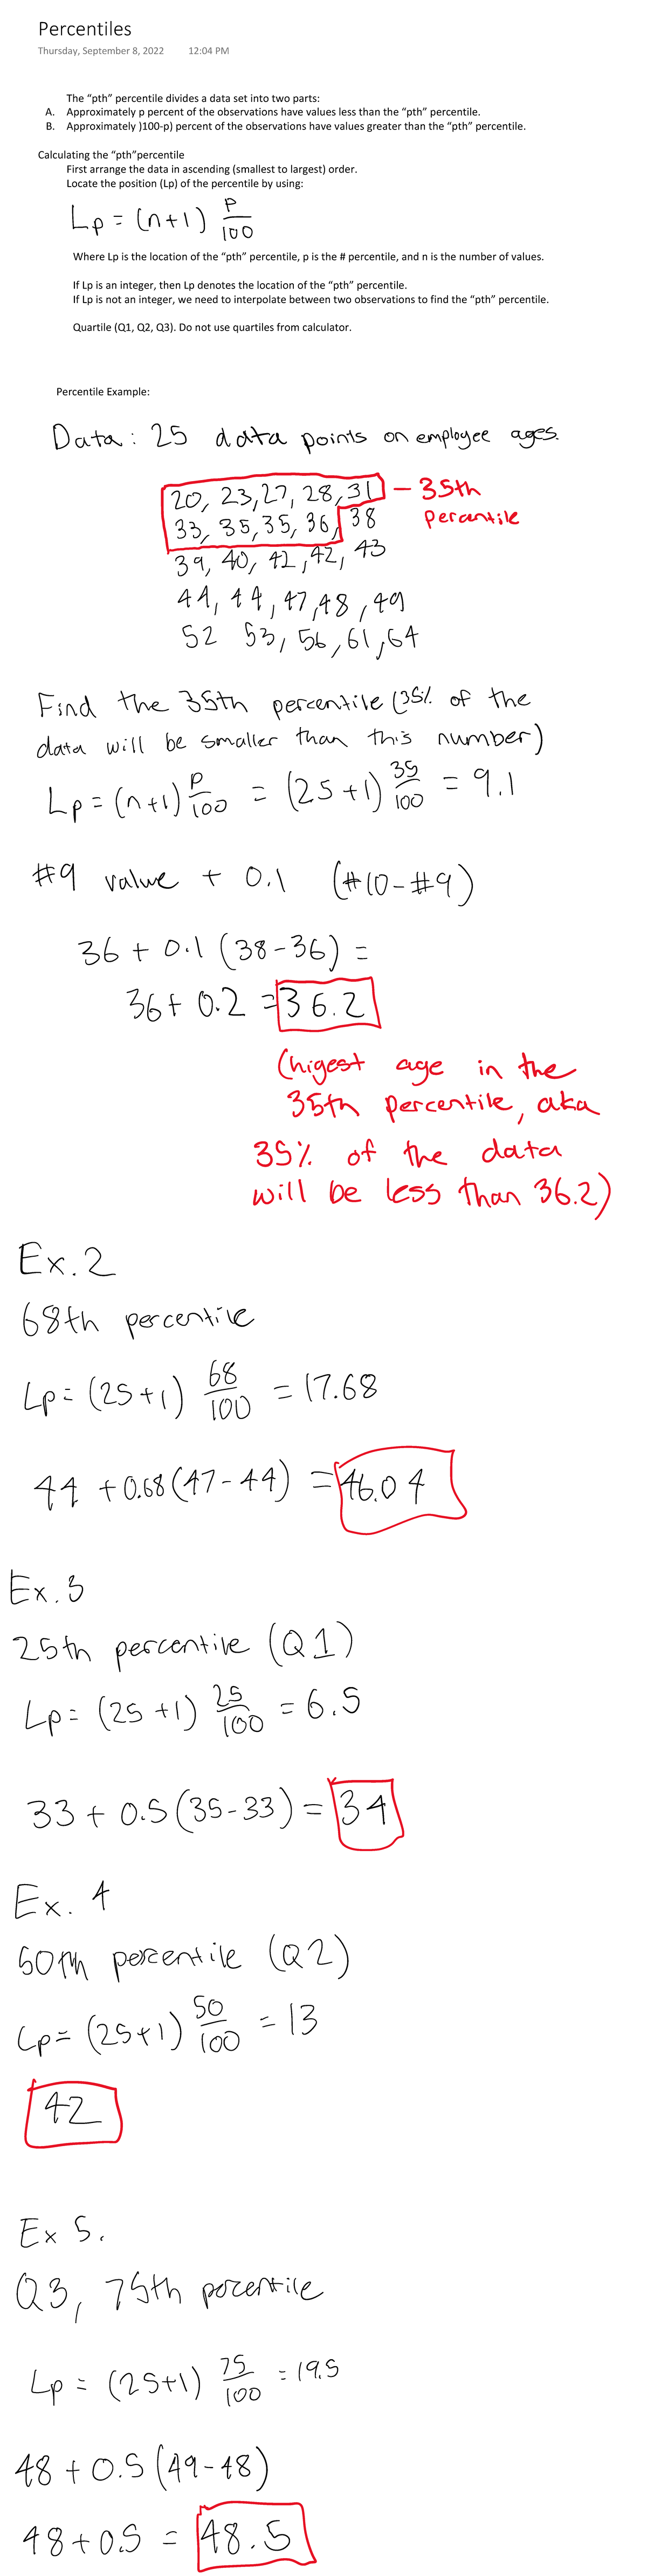 Percentiles
Thursday, September 8, 2022 12:04 PM
The "pth" percentile divides a data set into two parts:
A. Approximately p percent of the observations have values less than the "pth" percentile.
B. Approximately )100-p) percent of the observations have values greater than the "pth" percentile.
Calculating the "pth"percentile
First arrange the data in ascending (smallest to largest) order.
Locate the position (Lp) of the percentile by using:
Lp = (n+1) P/100
Where Lp is the location of the "pth" percentile, p is the # percentile, and n is the number of values.
If Lp is an integer, then Lp denotes the location of the "pth" percentile.
If Lp is not an integer, we need to interpolate between two observations to find the "pth" percentile.
Quartile (Q1, Q2, Q3). Do not use quartiles from calculator.
Percentile Example:
Data: 25 data points on employee ages.
20, 23, 27, 28, 31 – 35th
33, 35, 35, 36, 38 Percentile
39, 40, 42, 42, 43
44, 44, 47, 48, 49
52 53, 56, 61, 64
Find the 35th percentile (35% of the
data will be smaller than this number)
Lp = (n+1) P/100 = (25+1) 35/100 = 9.1
#9 value + 0.1 (#10-#9)
36 + 0.1 (38-36) =
36 + 0.2 = 36.2
(higest age in the
35th percentile, aka
35% of the data
will be less than 36.2)
Ex. 2
68th percentile
Lp = (25+1) 68/100 = 17.68
44 + 0.68 (47-44) = 46.04
Ex. 3
25th percentile (Q1)
Lp = (25+1) 25/100 = 6.5
33 + 0.5 (35-33) = 34
Ex. 4
50th percentile (Q2)
Lp = (25+1) 50/100 = 13
42
Ex 5.
Q3, 75th percentile
Lp = (25+1) 75/100 = 19.5
48 + 0.5 (49-48)
48 + 0.5 = 48.5